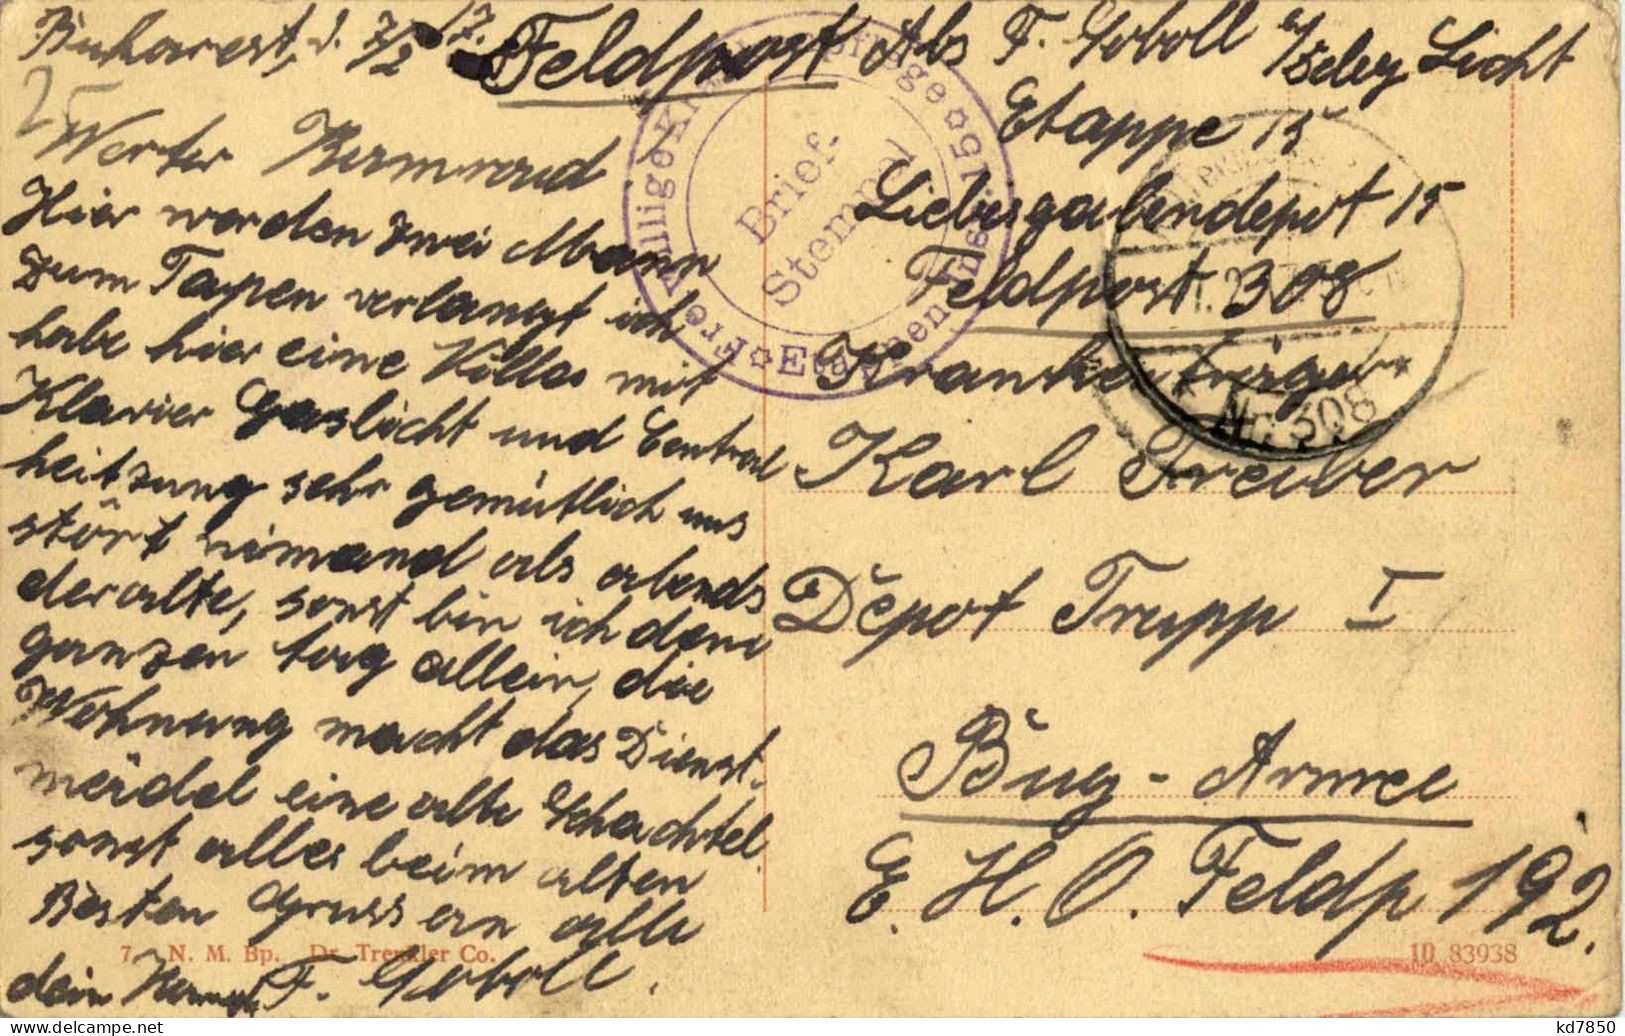 Bukarest, d. 7/2 17.
Feldpost
25
Werter
Hier werden zwei Mann
zum Tapen verlangt ich
habe hier eine Villa mit
Klavier Gaslicht und Central
heitzung sehr gemütlich uns
stört nimand als abends
der alte, sonst bin ich den
ganzen tag allein, die
Wohnung macht das Dienst-
mädel eine alte Schachtel
sonst alles beim alten
Besten Gruss an alle
dein F. Goboll.
Abs F. Goboll Licht
Etappe 15
Liebesgabendepot 15
Feldpost 308
Krankenträger
Karl Treiber
Depot Trupp I
Bug-Armee
E. H. O. Feldp 192.
Freiwillige Krankenpflege ✡ 15. ✡ Etappeninsp.
Brief-
Stempel
* Nr. 308 *
7. N. M. Bp. Dr. Trenkler Co.
10 83938
kd7850